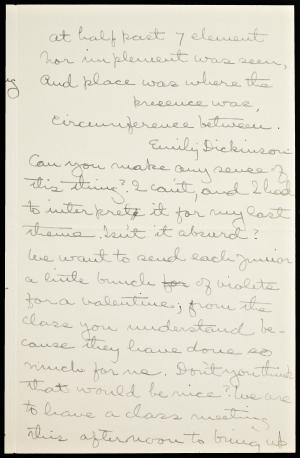 at half past 7 element
nor implement was seen,
And place was where the
presence was,
Circumference between.
Emily Dickinson
Can you make any sense of
this thing? I can't, and I had
to interpret it for my last
theme. Isn't it absurd?
We want to send each junior
a little bunch for of violets
for a valentine; from the
class you understand be-
cause they have done so
much for me. Don't you think
that would be nice? We are
to have a class meeting
this afternoon to bring up